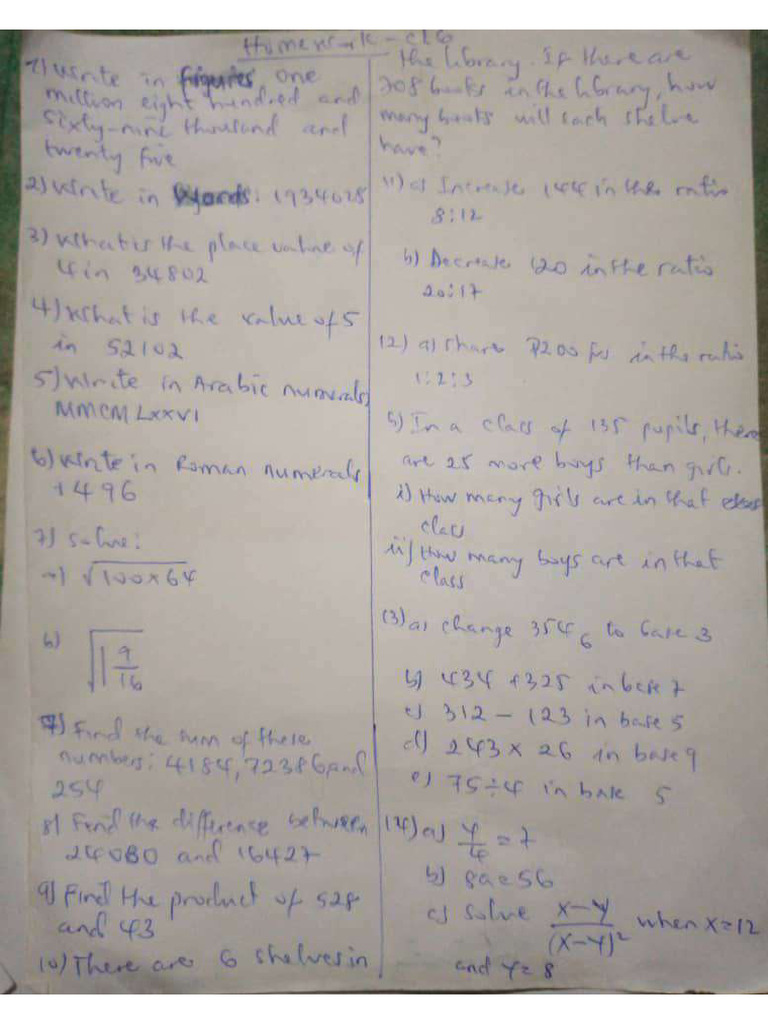 Homework - CL6
1) Write in figures one
million eight hundred and
sixty-nine thousand and
twenty five
2) Write in Words: 1934628
3) What is the place value of
4 in 34802
4) What is the value of 5
in 52102
5) Write in Arabic numerals,
MMCMLXXVI
6) Write in Roman numerals
1496
7) Solve:
a) √100×64
b) √1 9/16
7) Find the sum of these
numbers: 4184, 72386 and
254
8) Find the difference between
24080 and 16427
9) Find the product of 528
and 43
10) There are 6 shelves in
the library. If there are
208 books in the library, how
many books will each shelve
have?
11) a) Increase 144 in the ratio
8:12
b) Decrease 120 in the ratio
20:17
12) a) Share ₦200 in the ratio
1:2:3
b) In a class of 135 pupils, there
are 25 more boys than girls.
i) How many girls are in that
class
ii) How many boys are in that
class
13) a) change 354₆ to base 3
b) 434 + 325 in base 7
c) 312 - 123 in base 5
d) 243 × 26 in base 9
e) 75÷4 in base 5
14) a) y/4 = 7
b) 8a = 56
c) solve x-y/(x-y)² when x=12
and y=8